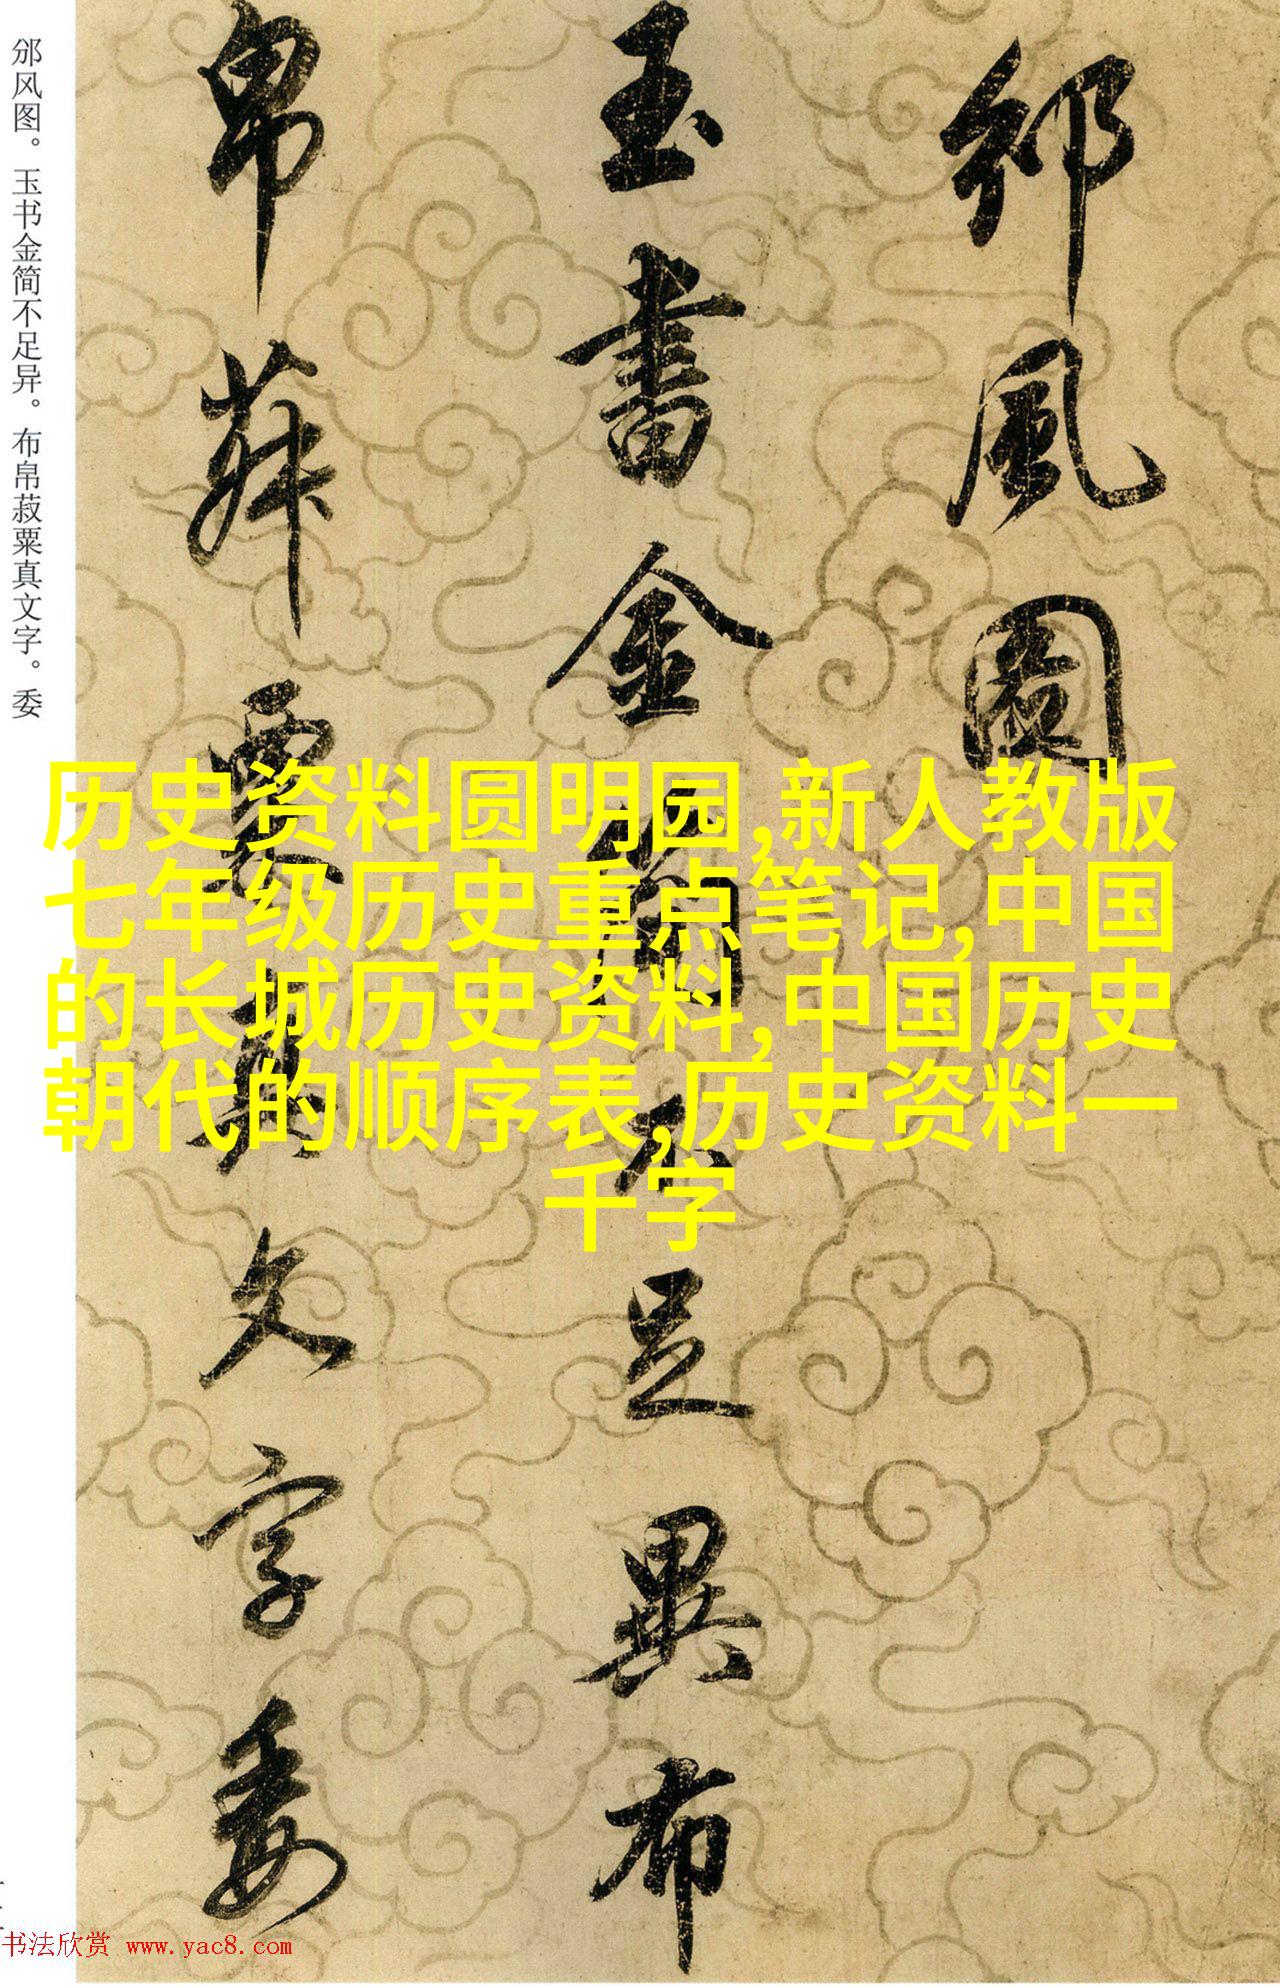 邠風圖
玉書金簡不足異布
帛菽粟真文字委
邠风图。玉书金简不足异。布帛菽粟真文字。委
历史资料圆明园,新人教版
七年级历史重点笔记,中国
的长城历史资料,中国历史
朝代的顺序表,历史资料一
千字
书法欣赏 www.yac8.com